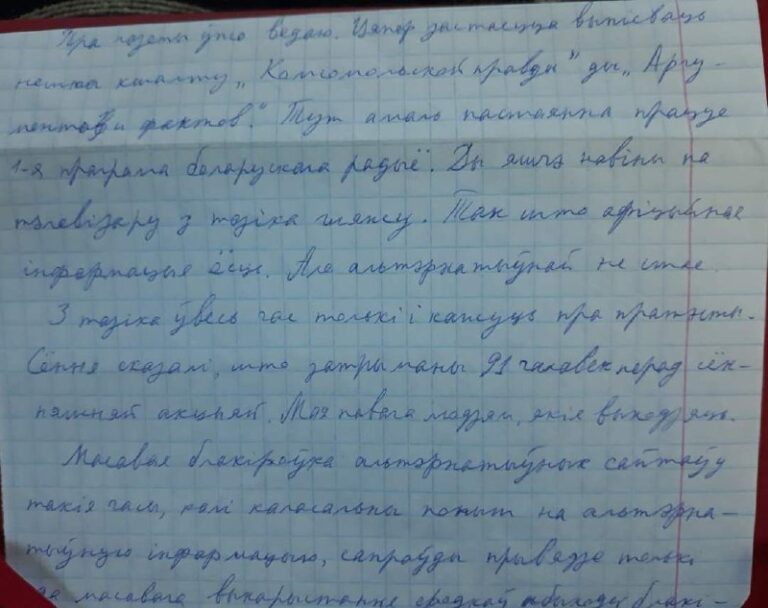 Пра газеты ўжо ведаю. Цяпер застаецца выпісваць
нешта кшталту „Комсомольской правды" ды „Аргу-
ментов и фактов". Тут амаль пастаянна працуе
1-я праграма беларускага радыё. Ды яшчэ навіны па
тэлевізару з тозіка гляжу. Так што афіцыйная
інфармацыя ёсць. Але альтэрнатыўнай не стае.
З тозіка ўвесь час толькі і кажуць пра пратэсты.
Сёння сказалі, што затрыманы 91 чалавек перад сён-
няшняй акцыяй. Мая павага людзям, якія выходзяць.
Масавая блакіроўка альтэрнатыўных сайтаў у
такія часы, калі каласальны попыт на альтэрна-
тыўную інфармацыю, сапраўды прывядзе толькі
да масавага выкарыстання сродкаў абыходу блакі-